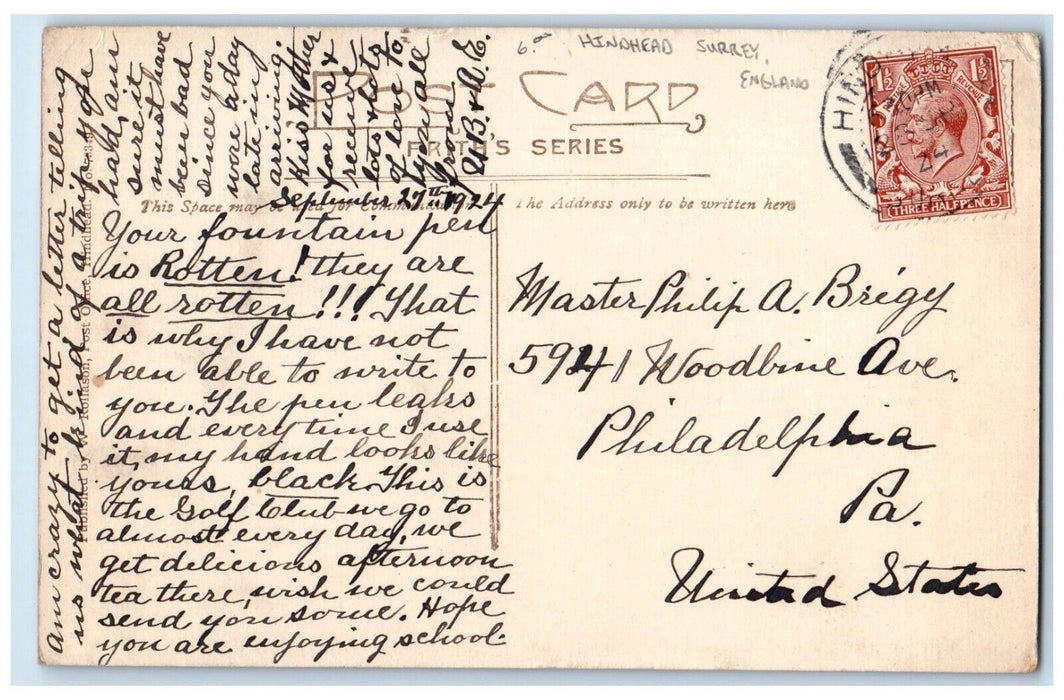 6.⁰⁰ HINDHEAD SURREY,
ENGLAND
POST CARD
FRITH'S SERIES
This Space may be used for Communication
The Address only to be written here
September 27th 1924
Your fountain pen
is Rotten! they are
all rotten!!! That
is why I have not
been able to write to
you. The pen leaks
and every time I use
it, my hand looks like
yours, black. This is
the Golf Club we go to
almost every day, we
get delicious afternoon
tea there, wish we could
send you some. Hope
you are enjoying school.
Am crazy to get a letter telling
us what kind of a trip you
had, am
sure it
must have
been bad
since you
were a day
late in
arriving.
Kiss Mother
for us &
remember
lots & lots
of love to
you all
from
U.B. & A.E.
Published by W. Rollason, Post Office, Hindhead.
Master Philip A. Brégy
5941 Woodbine Ave.
Philadelphia
Pa.
United States
HIND
PM
24
1½ 1½
REVENUE
THREE HALFPENCE